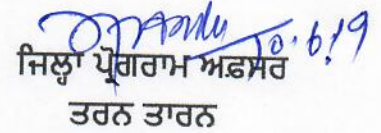 10.6.19
ਜਿਲ੍ਹਾ ਪ੍ਰੋਗਰਾਮ ਅਫ਼ਸਰ
ਤਰਨ ਤਾਰਨ